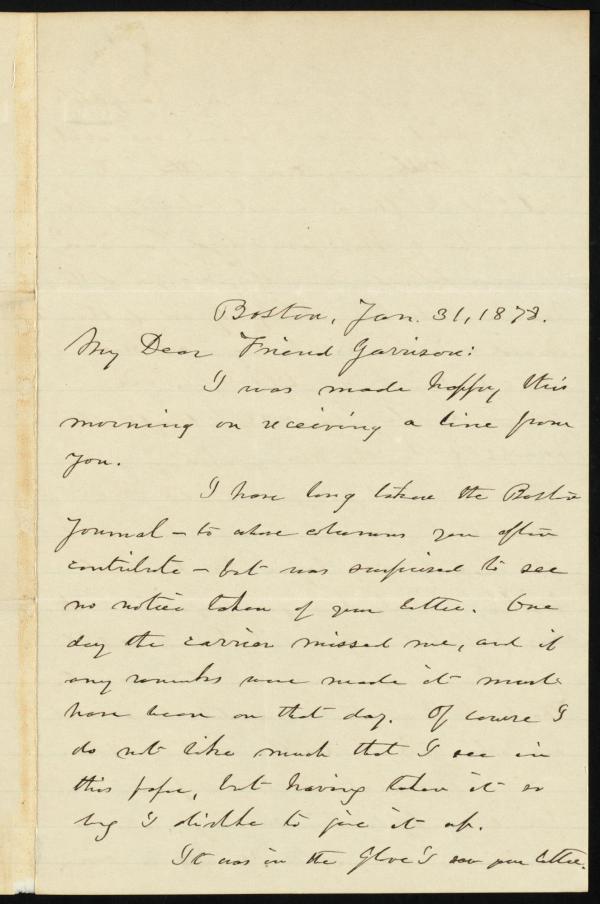 Boston, Jan. 31, 1878.
My Dear Friend Garrison:
I was made happy this
morning on receiving a line from
you.
I have long taken the Boston
Journal — to whose columns you often
contribute — but was surprised to see
no notice taken of your letter. One
day the carrier missed me, and if
any remarks were made it must
have been on that day. Of course I
do not like much that I see in
this paper, but having taken it so
long I dislike to give it up.
It was in the Globe I saw your letter.